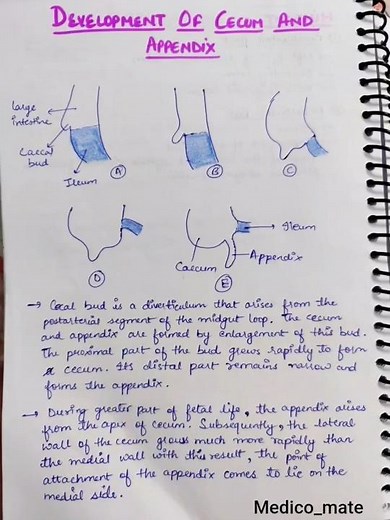 DEVELOPMENT OF CECUM AND
APPENDIX
large
intestine
Caecal
bud
Ileum
A
B
C
D
E
Ileum
Appendix
Caecum
→ Cecal bud is a diverticulum that arises from the
postarterial segment of the midgut loop. The cecum
and appendix are formed by enlargement of this bud.
The proximal part of the bud grows rapidly to form
cecum. Its distal part remains narrow and
forms the appendix.
→ During greater part of fetal life, the appendix arises
from the apex of cecum. Subsequently, the lateral
wall of the cecum grows much more rapidly than
the medial wall with this result, the point of
attachment of the appendix comes to lie on the
medial side.
Medico_mate